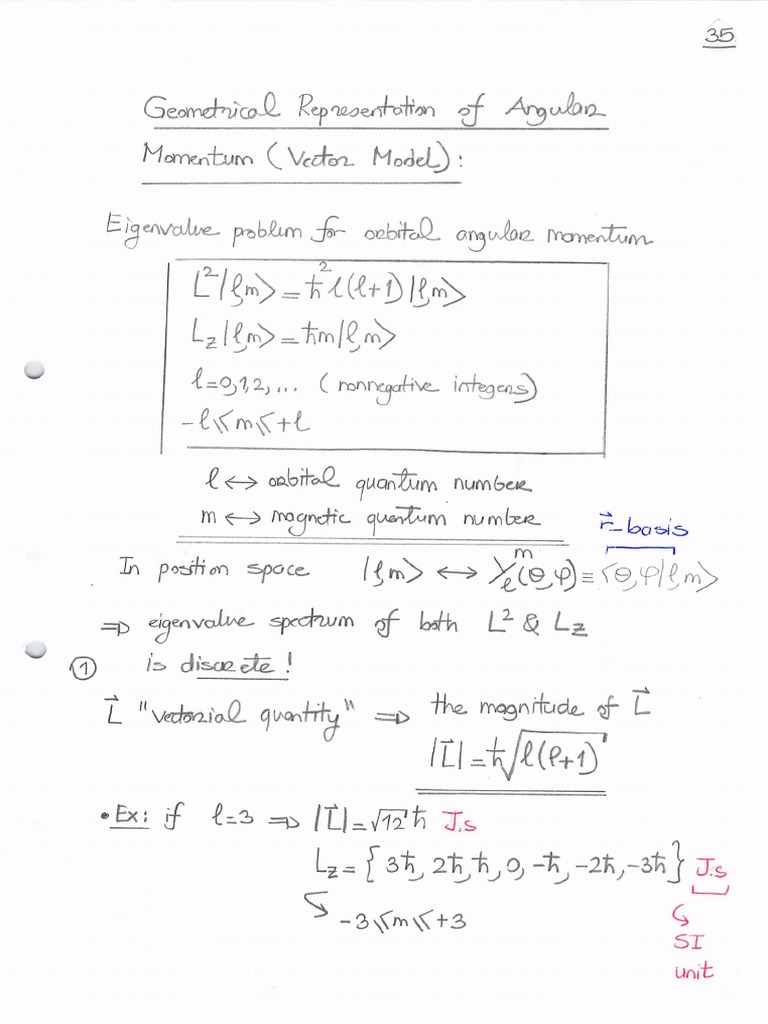 35
Geometrical Representation of Angular
Momentum (Vector Model):
Eigenvalue problem for orbital angular momentum
L²|l,m> = ħ² l(l+1) |l,m>
L_z|l,m> = ħm|l,m>
l=0,1,2,... (nonnegative integers)
-l ≤ m ≤ +l
l ↔ orbital quantum number
m ↔ magnetic quantum number
r⃗-basis
In position space |l,m> ↔ Y_l^m(θ,φ) ≡ <θ,φ|l,m>
⇒ eigenvalue spectrum of both L² & L_z
① is discrete!
L⃗ "vectorial quantity" ⇒ the magnitude of L⃗
|L⃗| = ħ√l(l+1)
• Ex: if l=3 ⇒ |L⃗| = √12 ħ J.s
L_z = { 3ħ, 2ħ, ħ, 0, -ħ, -2ħ, -3ħ } J.s
-3 ≤ m ≤ +3
SI
unit